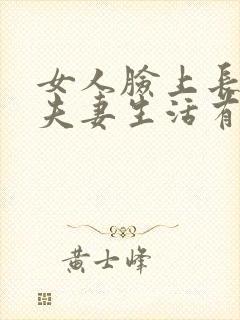 女人脸上长
夫妻生活有
黄士峰